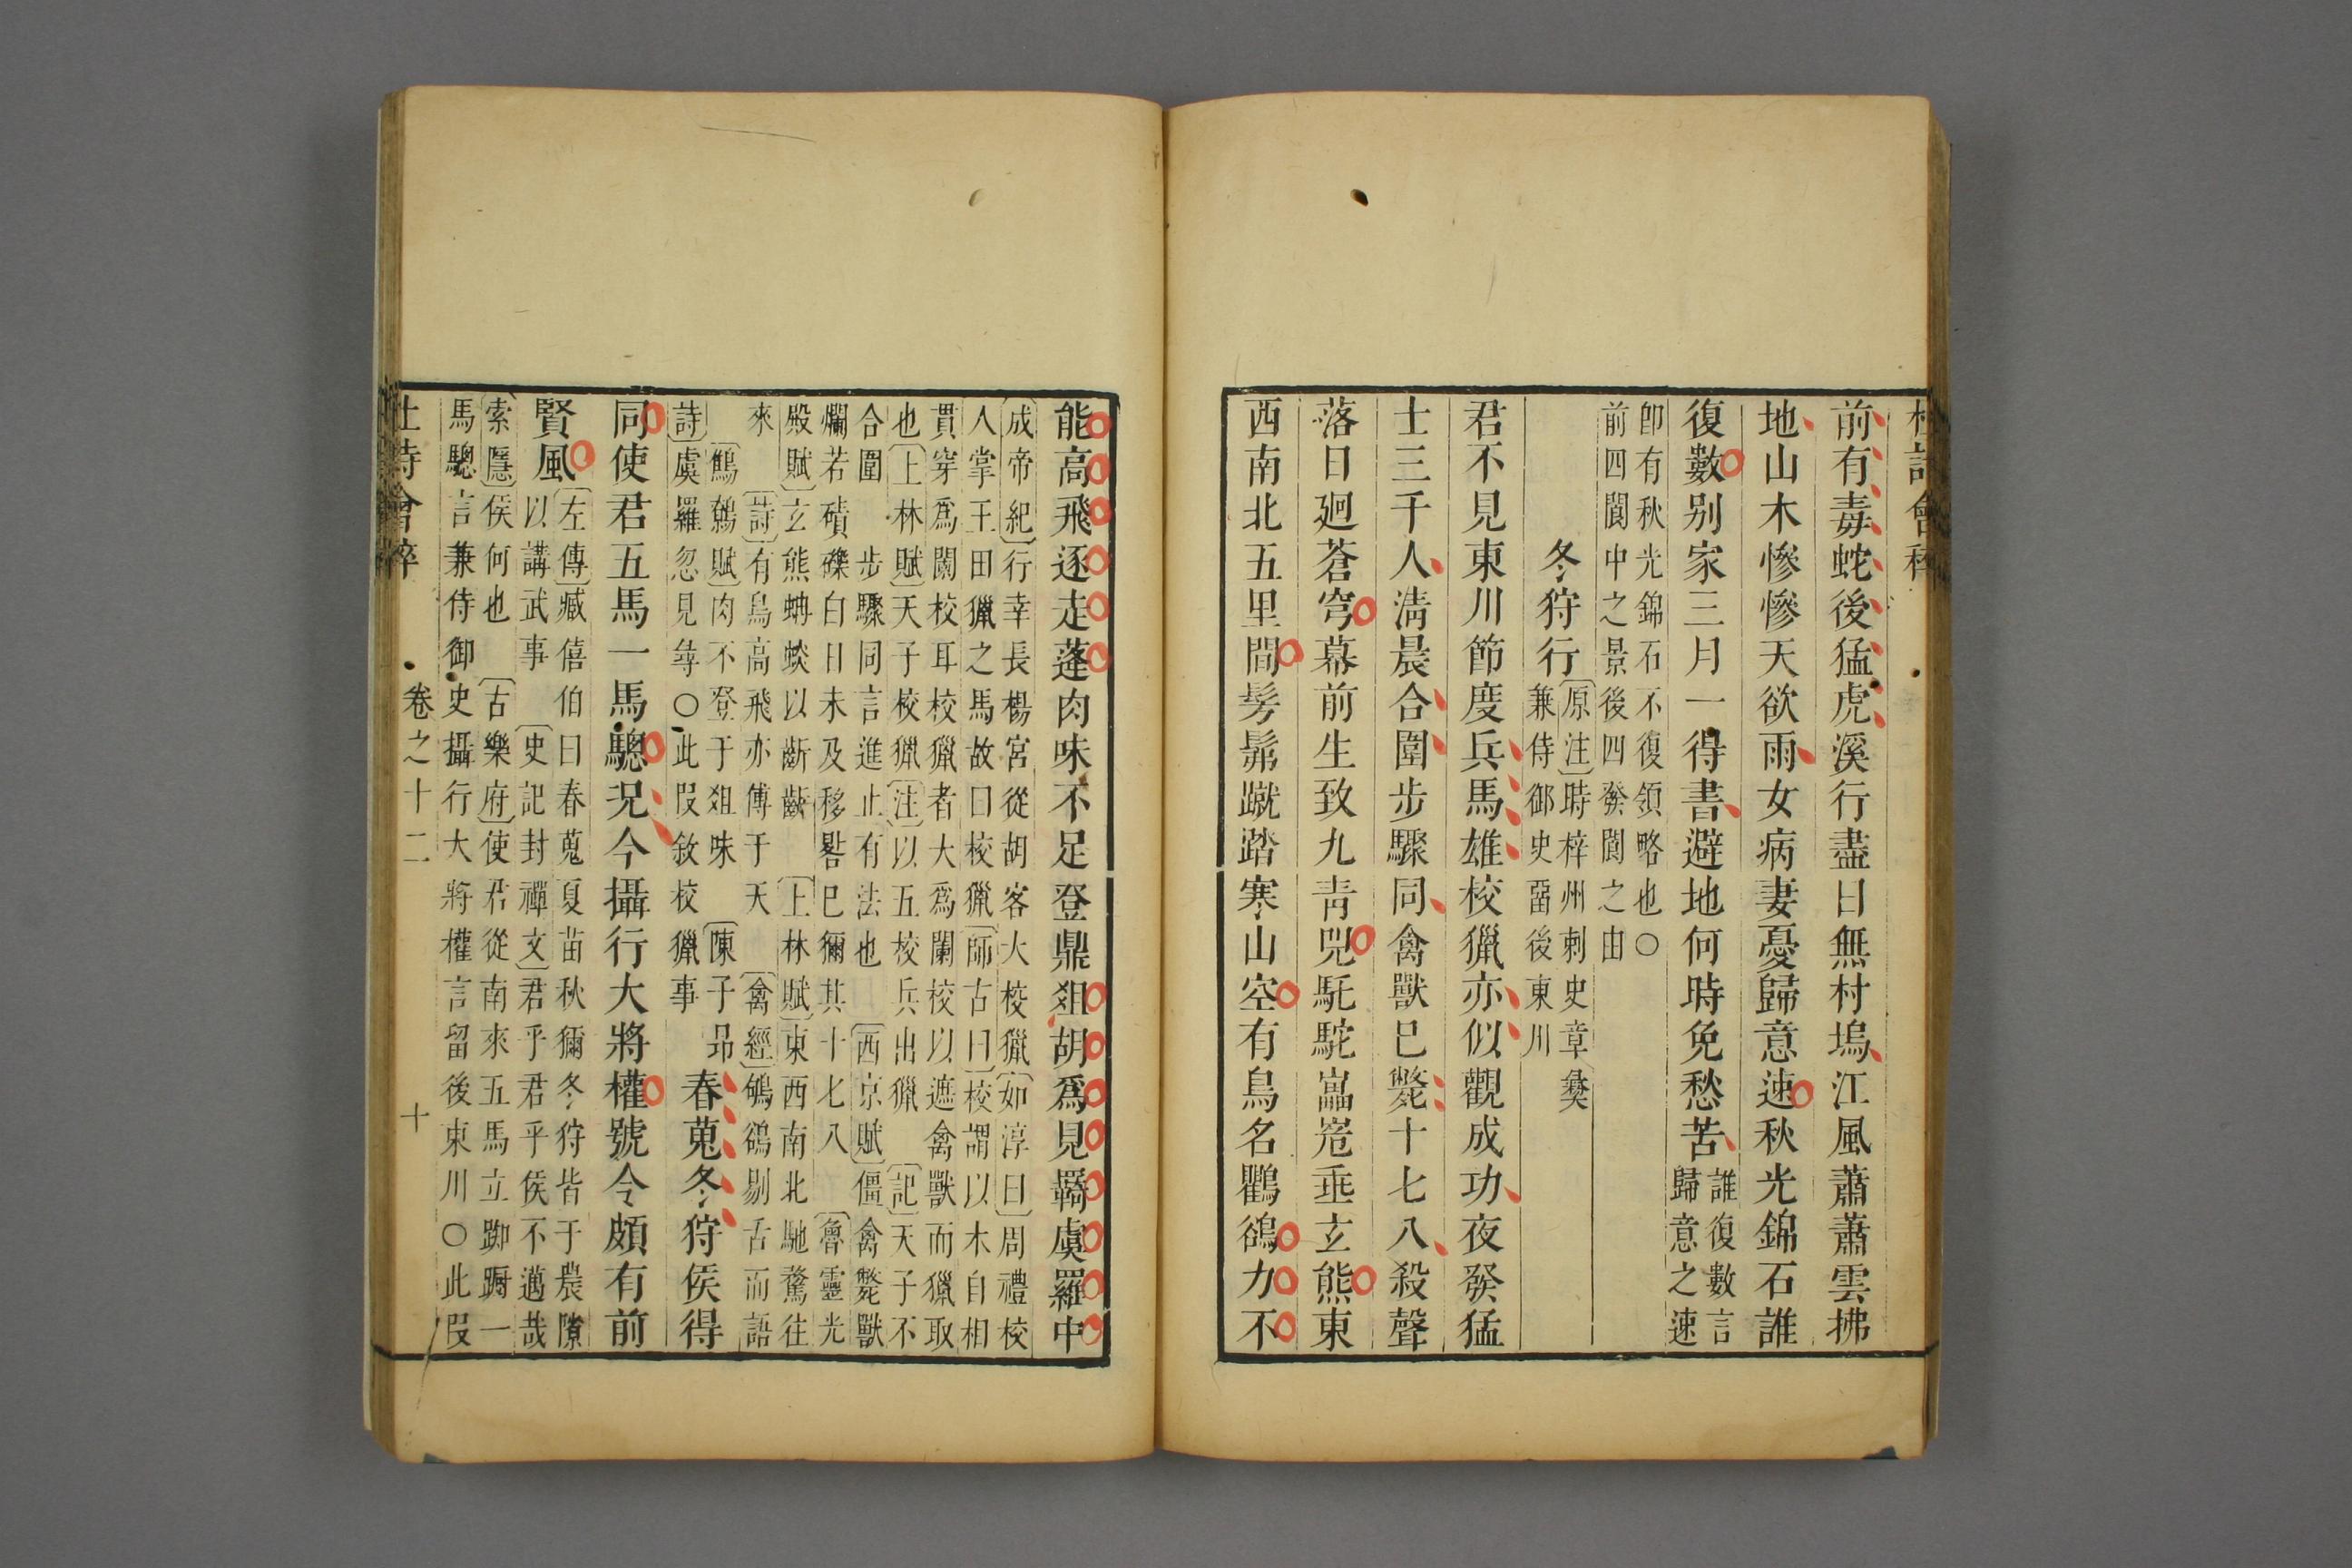 杜詩會稡
前有毒蛇後猛虎溪行盡日無村塢江風蕭蕭雲拂
地山木慘慘天欲雨女病妻憂歸意速秋光錦石誰
復數别家三月一得書避地何時免愁苦
誰復數言
歸意之速
卽有秋光錦石不復領略也○
前四闅中之景後四發閬之由
冬狩行
原注時梓州刺史章彝
兼侍御史畱後東川
君不見東川節度兵馬雄校獵亦似觀成功夜發猛
士三千人淸晨合圍步驟同禽獸已斃十七八殺聲
落日廻蒼穹幕前生致九青兕馲駝㠥峞垂玄熊東
西南北五里間髣髴蹴踏寒山空有鳥名鸜鵒力不
能高飛逐走蓬肉味不足登鼎俎胡爲見羇虞羅中
成帝紀行幸長楊宮從胡客大校獵如淳曰周禮校
人掌王田獵之馬故曰校獵師古曰校謂以木自相
貫穿爲闌校耳校獵者大爲闌校以遮禽獸而獵取
也上林賦天子校獵注以五校兵出獵
記天子不
合圍
步驟同言進止有法也
西京賦僵禽斃獸
爛若磧礫白日未及移晷已獮其十七八
魯靈光
殿賦玄熊蚺蛺以齗齗
上林賦東西南北馳騖往
來
詩有鳥高飛亦傅于天
禽經鴝鵒剔舌而語
鷦鷯賦肉不登于俎味
陳子昻
詩虞羅忽見㝷○此叚敘校獵事
春蒐冬狩侯得
同使君五馬一馬驄况今攝行大將權號令頗有前
賢風
左傳臧僖伯曰春蒐夏苗秋獮冬狩皆于農隙
以講武事
史記封禪文君乎君乎侯不邁哉
索隱侯何也
古樂府使君從南來五馬立踟蹰一
馬驄言兼侍御史攝行大將權言留後東川○此叚
杜詩會稡
卷之十二
十